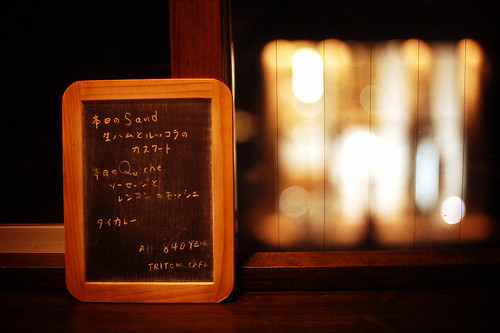 本日のSand
生ハムとルッコラの
カスクート
本日のQuiche
ソーセージと
レンコンのキッシュ
タイカレー
All 840 YEN
TRITON CAFE